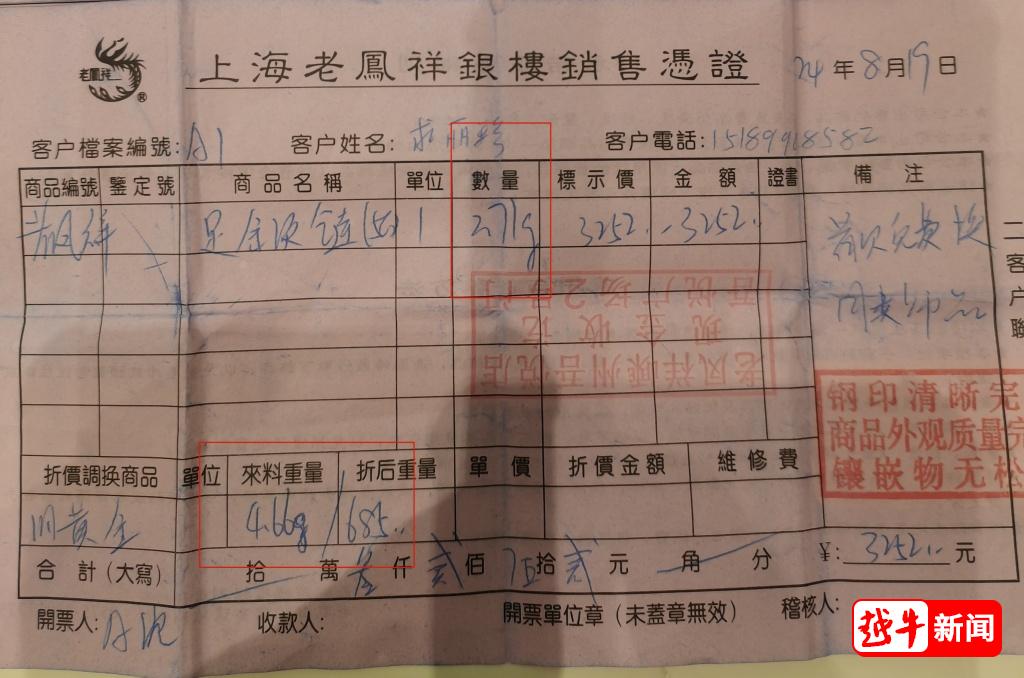 老鳳祥 ® 上海老鳳祥銀樓銷售憑證 24年8月19日
客户檔案編號:A1 客户姓名: 客户電話:15189918582
商品編號 鑒定號 商品名稱 單位 數量 標示價 金額 證書 備注
足金 1 2.71g 3252.- 3252.-
首次免费换
同类饰品
二 客户聯
吾悦广场2号门
现金收讫
老凤祥嵊州吾悦店
钢印清晰完
商品外观质量完
镶嵌物无松
折價調换商品 單位 來料重量 折后重量 單價 折價金額 維修費
旧黄金 4.66g /685
合計(大寫) 拾 萬 叁仟 贰佰 伍拾 贰元 角 分 ¥:3252.- 元
開票人: 收款人: 開票單位章(未蓋章無效) 稽核人:
越牛新闻